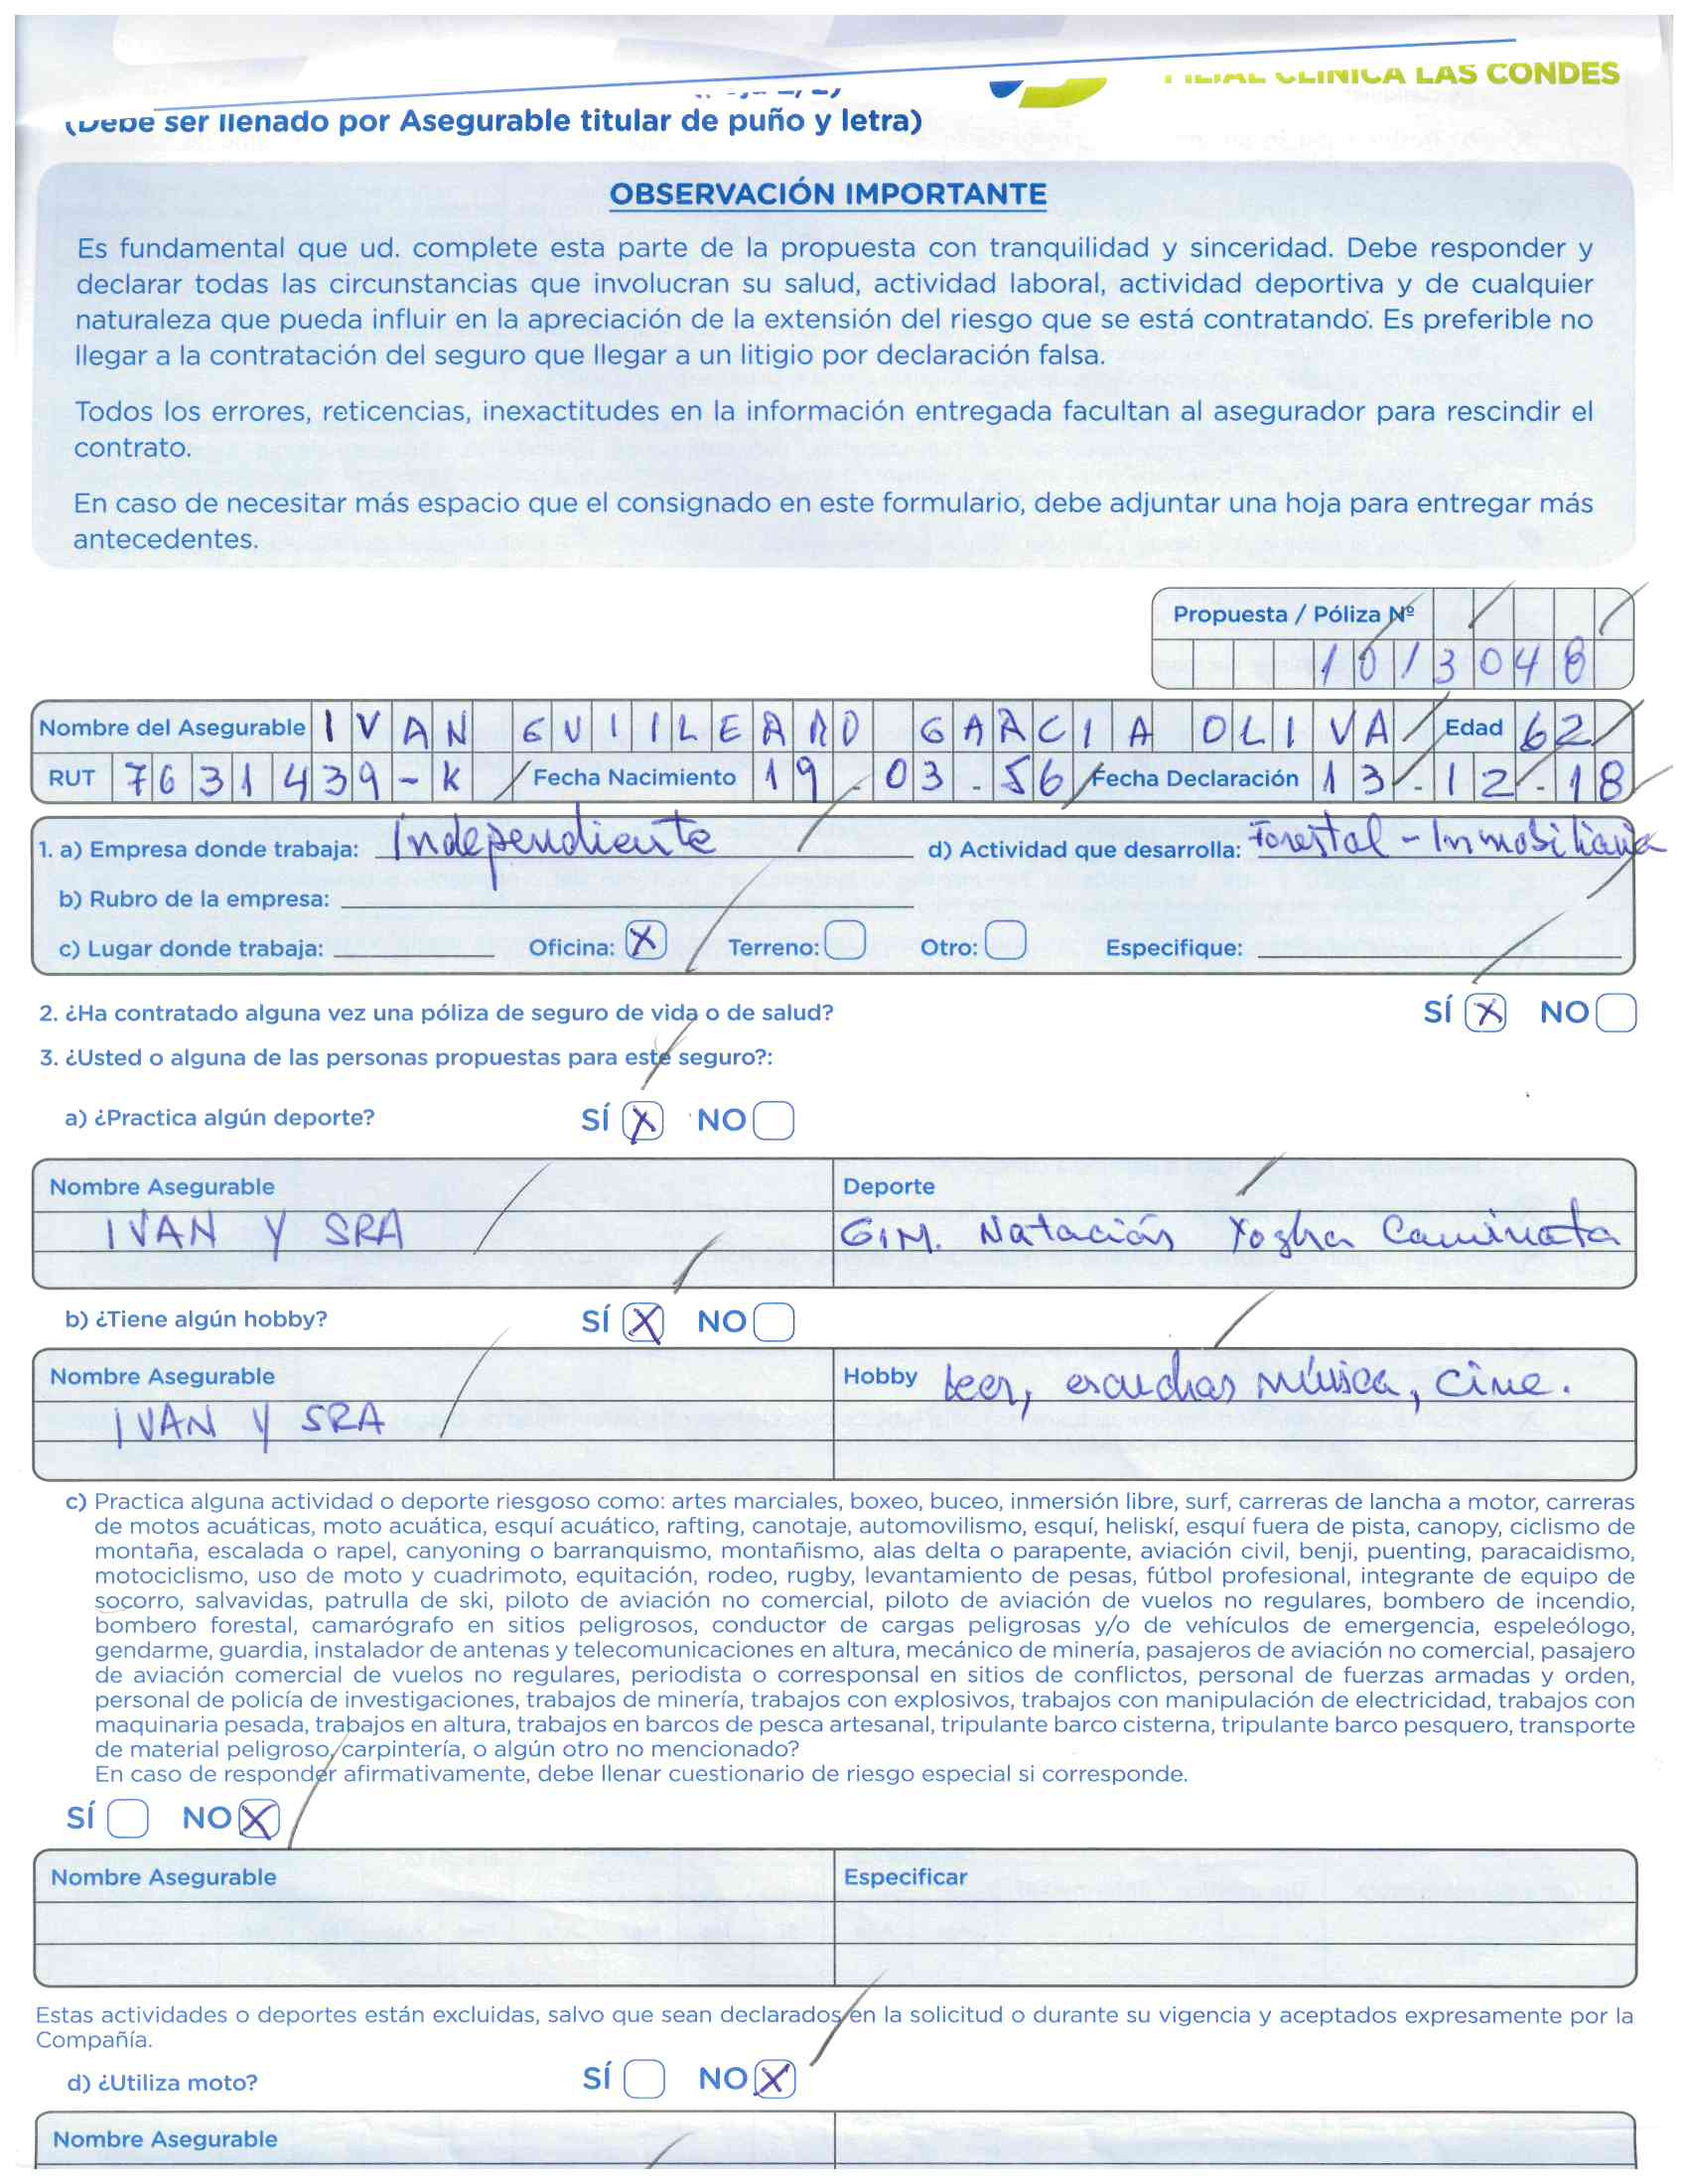 FILIAL CLINICA LAS CONDES
(Debe ser llenado por Asegurable titular de puño y letra)
OBSERVACIÓN IMPORTANTE
Es fundamental que ud. complete esta parte de la propuesta con tranquilidad y sinceridad. Debe responder y
declarar todas las circunstancias que involucran su salud, actividad laboral, actividad deportiva y de cualquier
naturaleza que pueda influir en la apreciación de la extensión del riesgo que se está contratando. Es preferible no
llegar a la contratación del seguro que llegar a un litigio por declaración falsa.
Todos los errores, reticencias, inexactitudes en la información entregada facultan al asegurador para rescindir el
contrato.
En caso de necesitar más espacio que el consignado en este formulario, debe adjuntar una hoja para entregar más
antecedentes.
Propuesta / Póliza Nº
1013048
Nombre del Asegurable IVAN GUILLERMO GARCIA OLIVA Edad 62
RUT 7631439-K Fecha Nacimiento 19.03.56 Fecha Declaración 13.12.18
1. a) Empresa donde trabaja: Independiente d) Actividad que desarrolla: Forestal - Inmobiliaria
b) Rubro de la empresa:
c) Lugar donde trabaja: Oficina: X Terreno: Otro: Especifique:
2. ¿Ha contratado alguna vez una póliza de seguro de vida o de salud? SÍ X NO
3. ¿Usted o alguna de las personas propuestas para este seguro?:
a) ¿Practica algún deporte? SÍ X NO
Nombre Asegurable Deporte
IVAN Y SRA GIM. Natación Yogha Caminata
b) ¿Tiene algún hobby? SÍ X NO
Nombre Asegurable Hobby Leer, escuchar música, cine.
IVAN Y SRA
c) Practica alguna actividad o deporte riesgoso como: artes marciales, boxeo, buceo, inmersión libre, surf, carreras de lancha a motor, carreras
de motos acuáticas, moto acuática, esquí acuático, rafting, canotaje, automovilismo, esquí, heliskí, esquí fuera de pista, canopy, ciclismo de
montaña, escalada o rapel, canyoning o barranquismo, montañismo, alas delta o parapente, aviación civil, benji, puenting, paracaidismo,
motociclismo, uso de moto y cuadrimoto, equitación, rodeo, rugby, levantamiento de pesas, fútbol profesional, integrante de equipo de
socorro, salvavidas, patrulla de ski, piloto de aviación no comercial, piloto de aviación de vuelos no regulares, bombero de incendio,
bombero forestal, camarógrafo en sitios peligrosos, conductor de cargas peligrosas y/o de vehículos de emergencia, espeleólogo,
gendarme, guardia, instalador de antenas y telecomunicaciones en altura, mecánico de minería, pasajeros de aviación no comercial, pasajero
de aviación comercial de vuelos no regulares, periodista o corresponsal en sitios de conflictos, personal de fuerzas armadas y orden,
personal de policía de investigaciones, trabajos de minería, trabajos con explosivos, trabajos con manipulación de electricidad, trabajos con
maquinaria pesada, trabajos en altura, trabajos en barcos de pesca artesanal, tripulante barco cisterna, tripulante barco pesquero, transporte
de material peligroso, carpintería, o algún otro no mencionado?
En caso de responder afirmativamente, debe llenar cuestionario de riesgo especial si corresponde.
SÍ NO X
Nombre Asegurable Especificar
Estas actividades o deportes están excluidas, salvo que sean declarados en la solicitud o durante su vigencia y aceptados expresamente por la
Compañía.
d) ¿Utiliza moto? SÍ NO X
Nombre Asegurable